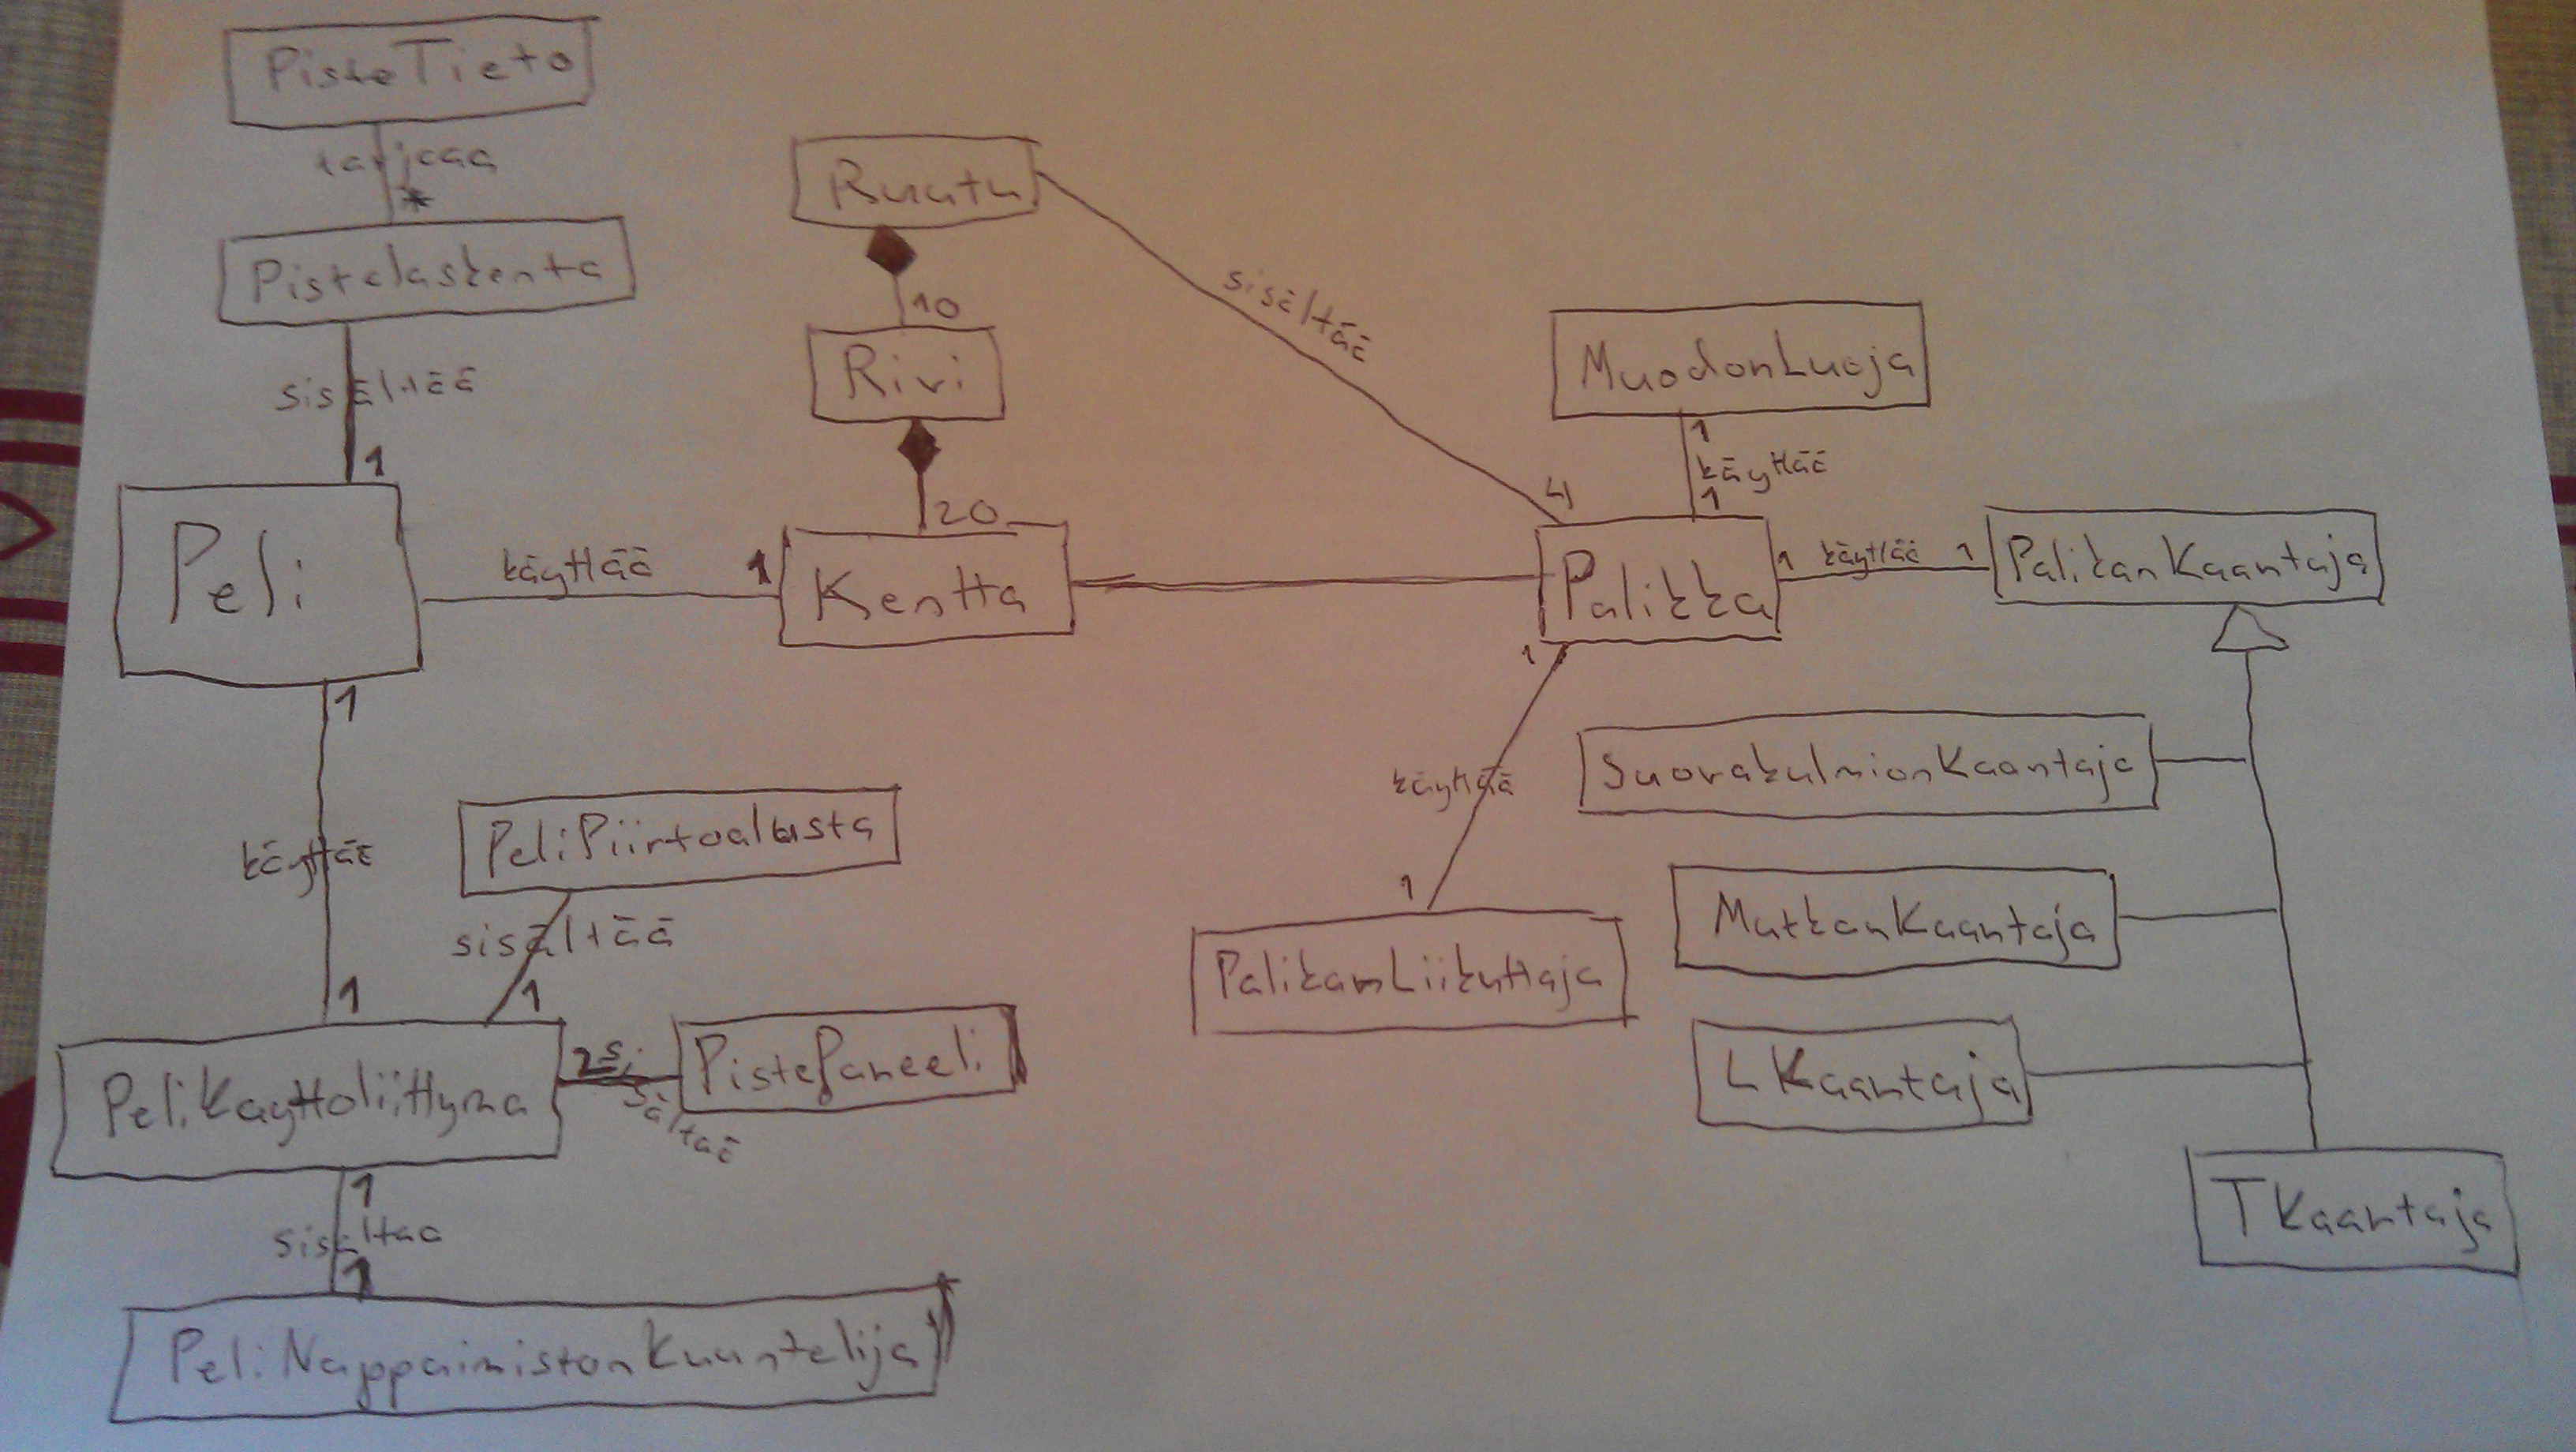 PisteTieto
tarjoaa
*
Pistelaskenta
sisältää
1
Peli
käyttää
1
Ruutu
10
Rivi
20
Kentta
sisältää
4
MuodonLuoja
1
käyttää
1
Palikka
1 käyttää 1
PalikanKaantaja
1
käyttää
1
PalikanLiikuttaja
SuorakulmionKaantaja
MutkanKaantaja
LKaantaja
TKaantaja
1
käyttää
1
PeliPiirtoalusta
sisältää
1
PeliKayttoliittyma
2 sisältää
PistePaneeli
1
sisältaa
1
PeliNappaimistonKuuntelija